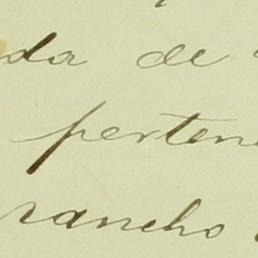 da de
perten
rancho